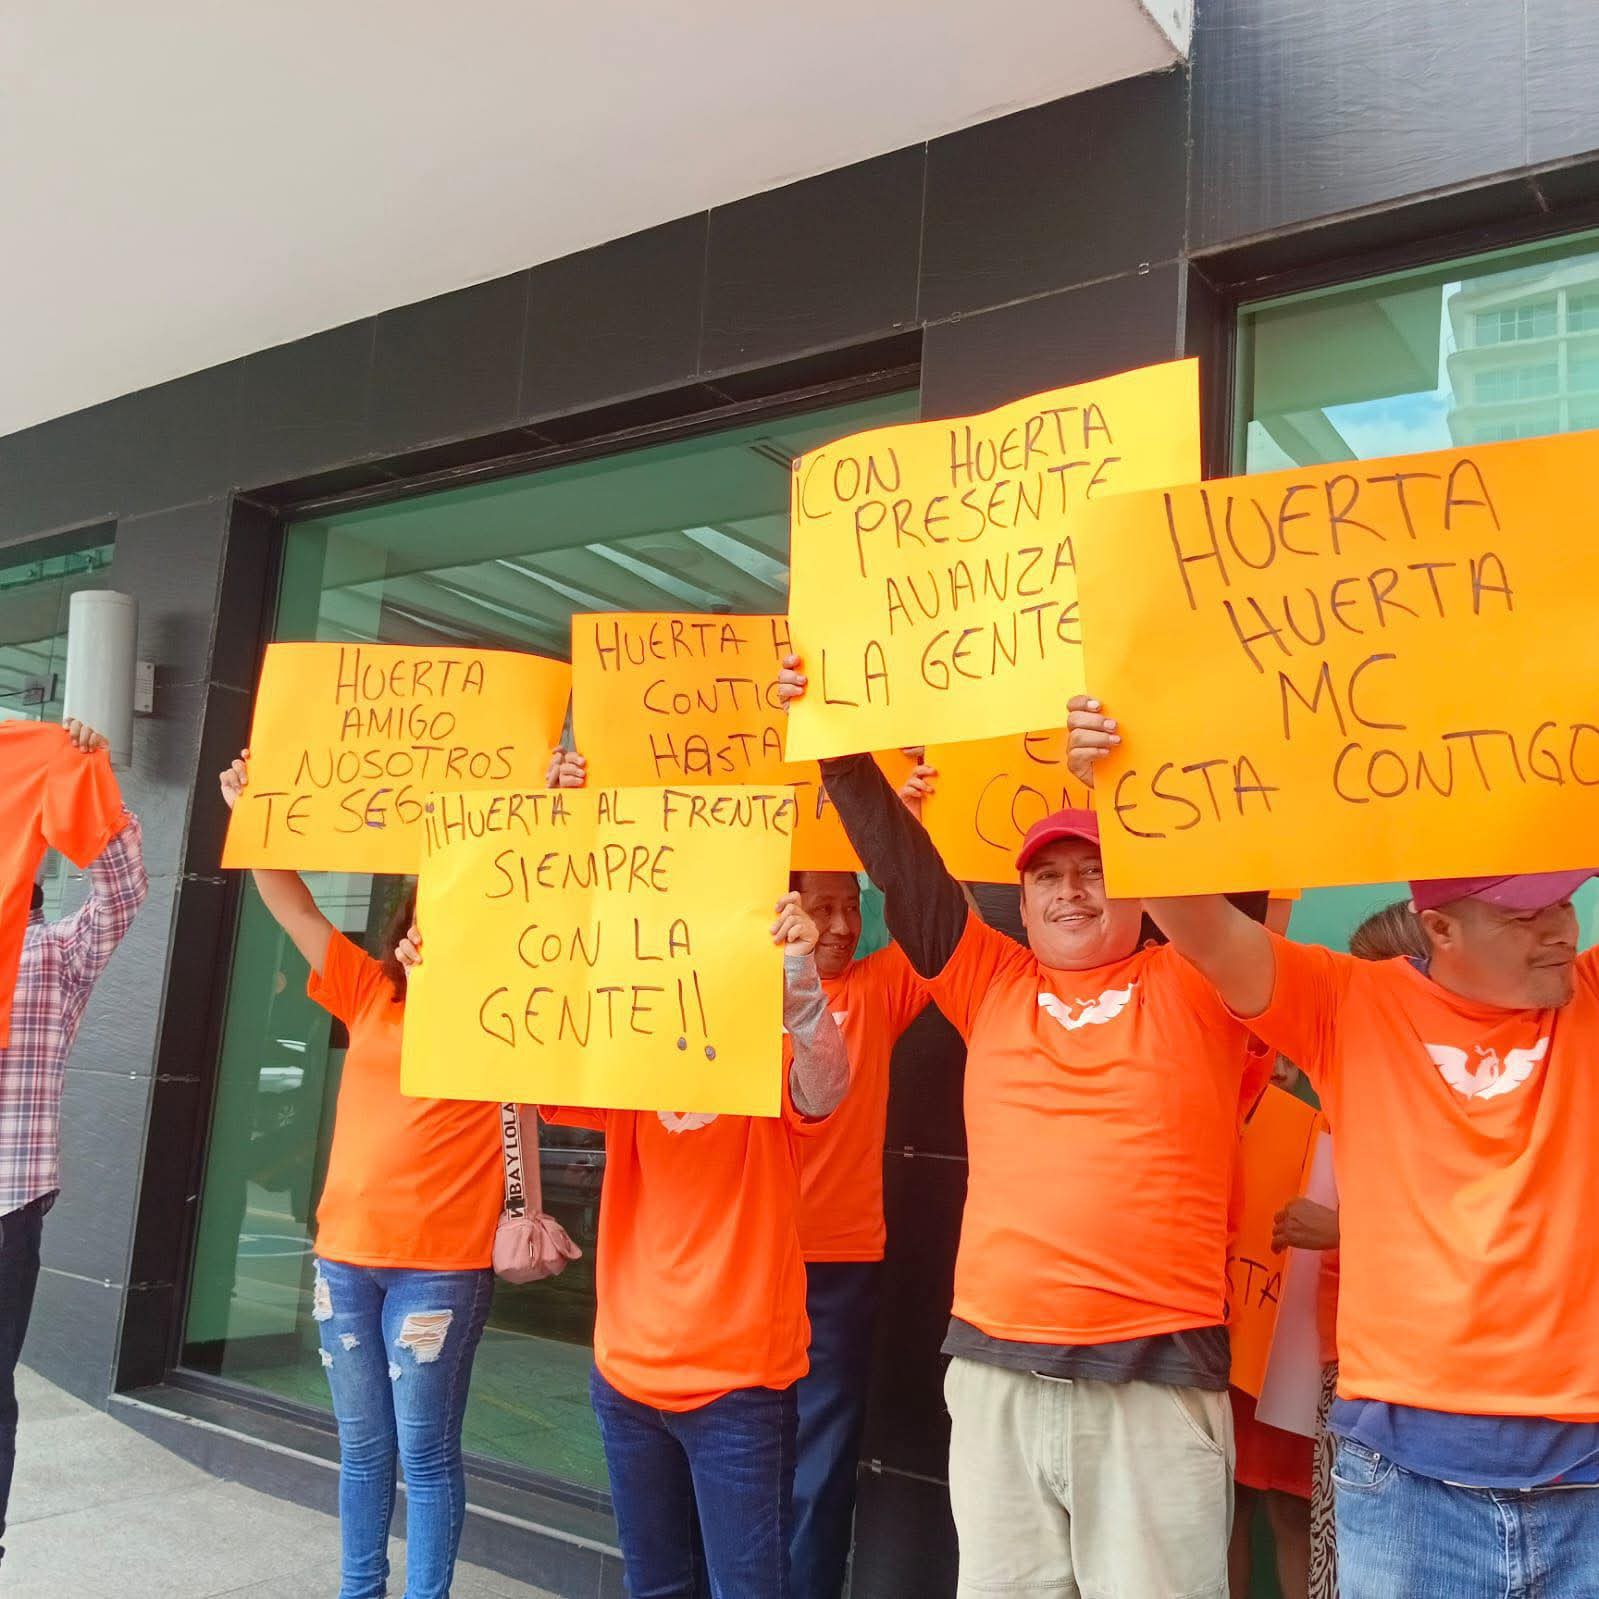 HUERTA
AMIGO
NOSOTROS
TE
HUERTA
CONTIGO
HASTA
¡CON HUERTA
PRESENTE
AVANZA
LA GENTE
HUERTA
HUERTA
MC
ESTA CONTIGO
¡¡HUERTA AL FRENTE
SIEMPRE
CON LA
GENTE!!
CON
BAYLOLA